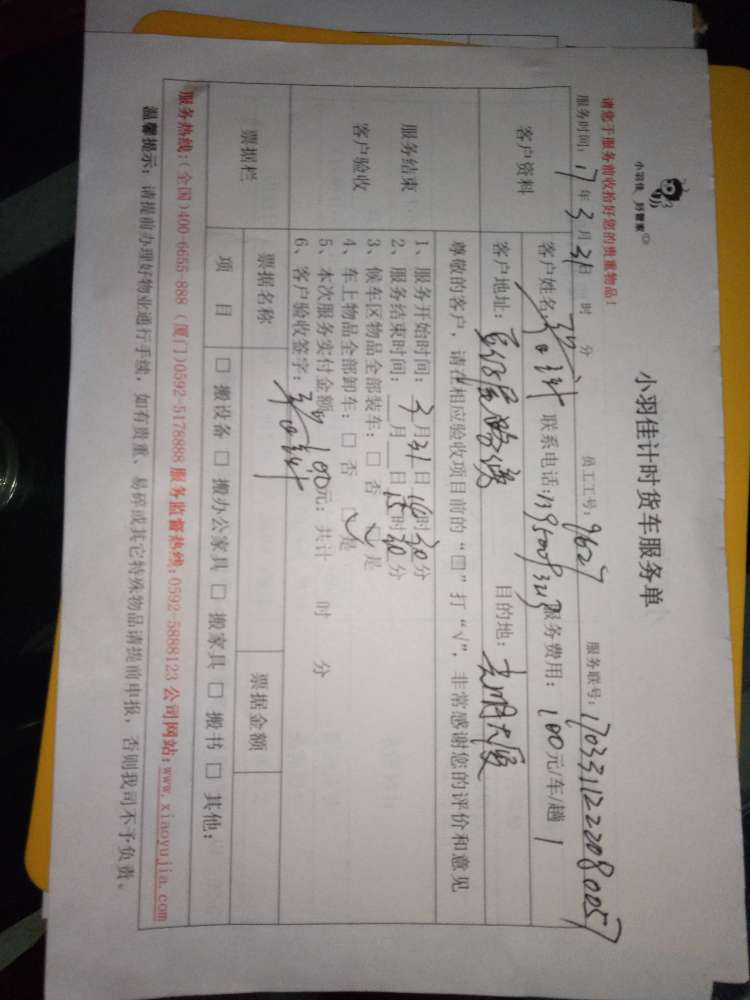 小羽佳 好管家
小羽佳计时货车服务单
请您于服务前收拾好您的贵重物品！
服务时间：17年3月31日 时 分 员工工号：9627 服务联号：170331122080057
客户资料
客户姓名 联系电话： 服务费用：100元/车/趟 1
客户地址： 目的地：光明大厦
尊敬的客户，请在相应验收项目前的“□”打“√”，非常感谢您的评价和意见
服务结束
客户验收
1、服务开始时间：3月31日 时30分
2、服务结束时间：__月__日15时30分
3、候车区物品全部装车：□ 否 √ 是
4、车上物品全部卸车：□ 否 √ 是
5、本次服务实付金额100元；共计 时 分
6、客户验收签字：
票据栏
票据名称 票据金额
项 目 □ 搬设备 □ 搬办公家具 □ 搬家具 □ 搬书 □ 其他：
服务热线：(全国)400-6655-888 (厦门)0592-5178888 服务监督热线：0592-5888123 公司网站：www.xiaoyujia.com
温馨提示：请提前办理好物业通行手续，如有贵重、易碎或其它特殊物品请提前申报，否则我司不予负责。